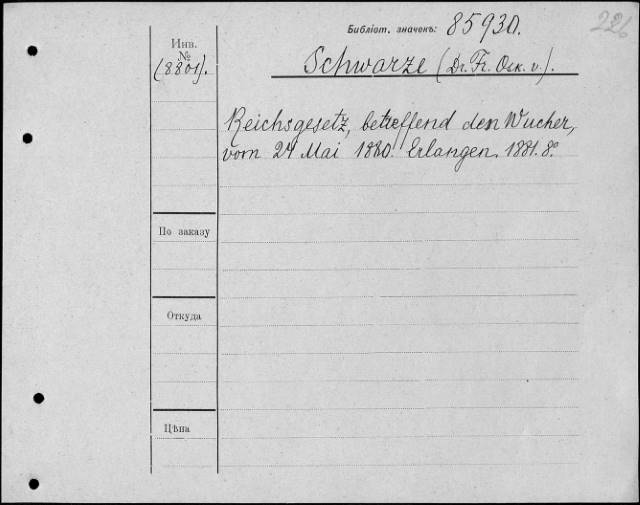 226
Библіот. значекъ: 85930.
Инв.
№
(8801).
Schwarze (Dr. Fr. Osk. v.).
Reichsgesetz, betreffend den Wucher,
vom 24 Mai 1880. Erlangen. 1881. 8º.
По заказу
Откуда
Цѣна